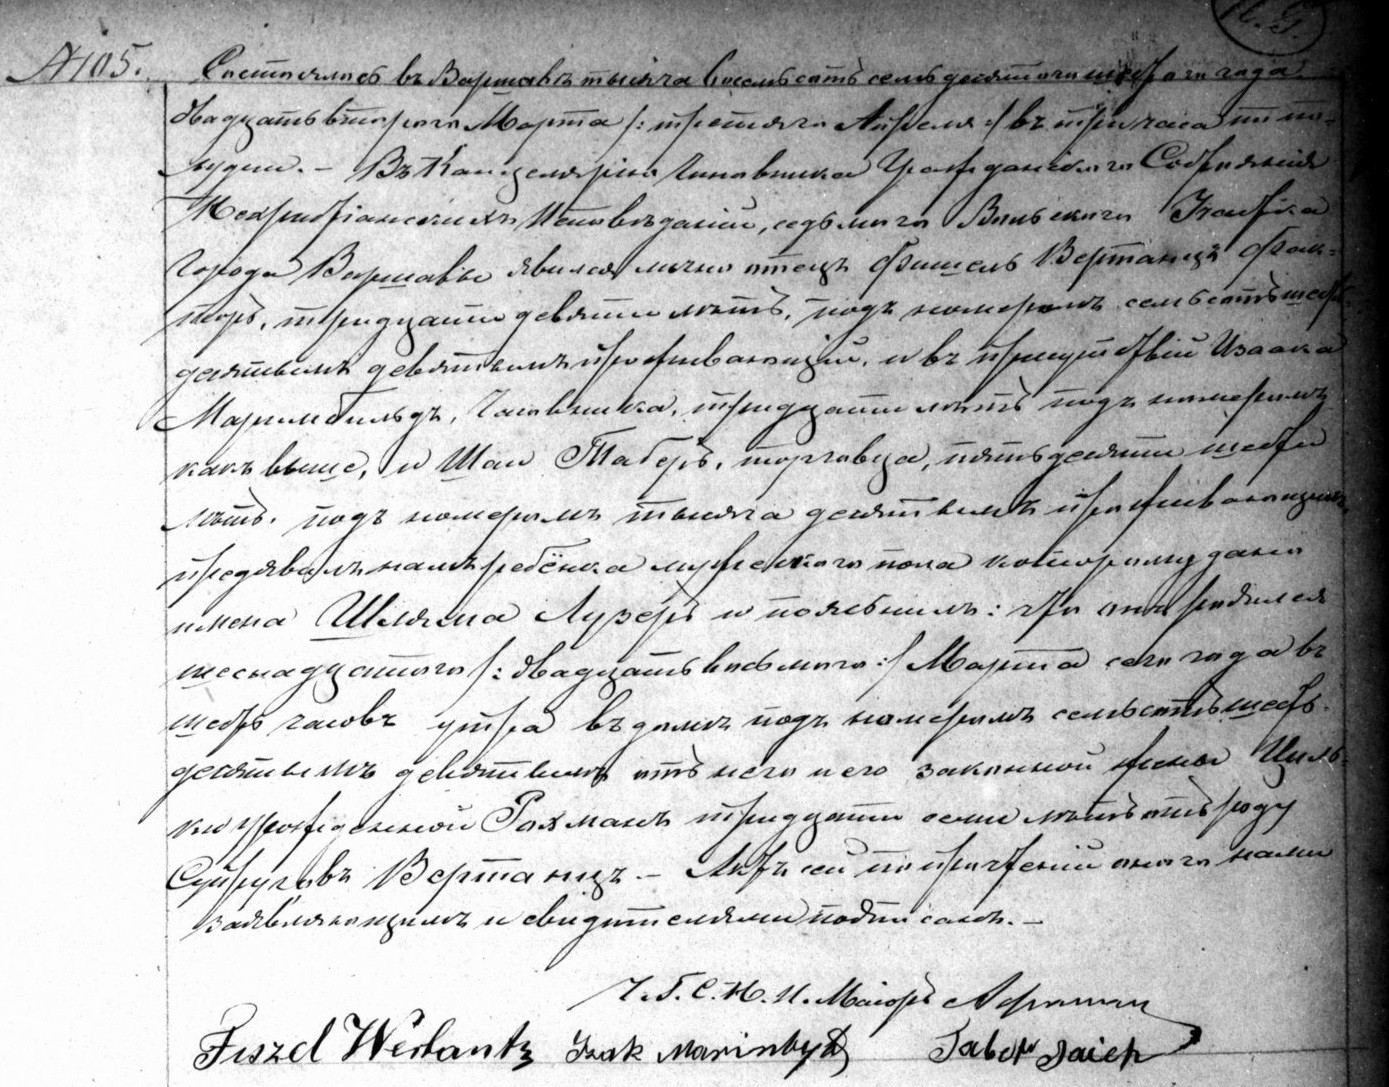 № 105.
Состоялось въ Варшавѣ тысяча восемьсотъ семьдесятаго шестого года
двадцать второго Марта /: третяго Апреля :/ въ три часа по по-
лудни. – Въ Канцелярію Чиновника Гражданскаго Состоянія
Нехристіанскихъ Исповѣданій, седьмаго Вольскаго Участка
города Варшавы явился лично отецъ Фишель Вертанцъ Фак-
торъ, тридцати девяти лѣтъ, подъ номеромъ семьсотъ шесть-
десятымъ девятымъ проживающій, и въ присутствіи Изаака
Маримбильдъ, Часовника, тридцати лѣтъ подъ номеромъ
какъ выше, и Шаи Таберъ, торговца, пятьдесяти шести
лѣтъ, подъ номеромъ тысяча девятымъ проживающихъ,
предявилъ намъ ребёнка мужескаго пола которому дано
имена Шляма Лузеръ и пояснилъ: что онъ родился
шеснадцатого /: двадцать восьмого :/ Марта сего года въ
шесть часовъ утра въ домѣ подъ номеромъ семьсотъ шесть-
десятымъ девятымъ отъ него и его законной жены Циль-
ки урожденной Рахманъ тридцати семи лѣтъ отъ роду
Супруговъ Вертанцъ – Актъ сей по прочтеніи онаго нами
заявляющимъ и свидѣтелями подписанъ. –
Ч. Г. С. Н. И. Маіоръ
Fiszel Wertantz Izak Marinbyld Taber